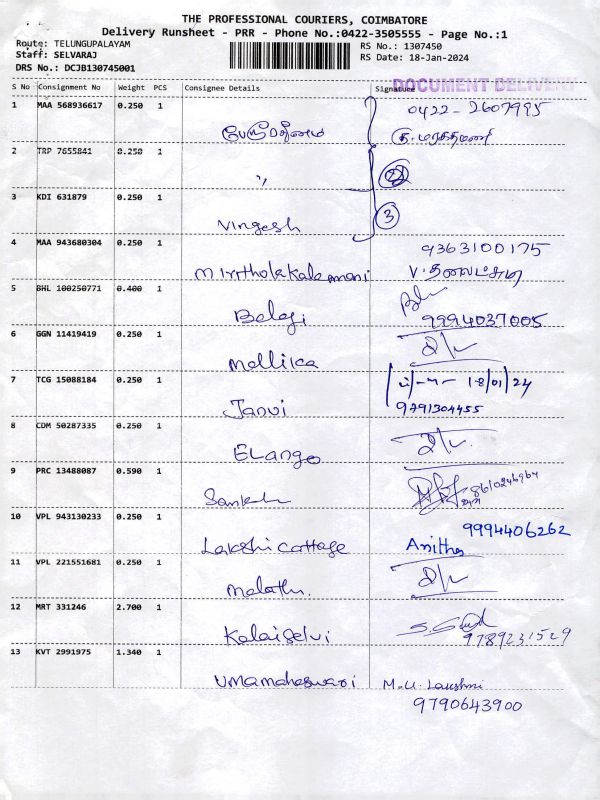 THE PROFESSIONAL COURIERS, COIMBATORE
Delivery Runsheet - PRR - Phone No.:0422-3505555 - Page No.:1
Route: TELUNGUPALAYAM
Staff: SELVARAJ
DRS No.: DCJB130745001
RS No.: 1307450
RS Date: 18-Jan-2024
DOCUMENT DELIVERY
S No Consignment No Weight PCS Consignee Details Signature
1 MAA 568936617 0.250 1 0422-2607995
2 TRP 7655841 0.250 1 〃 2
3 KDI 631879 0.250 1 Vingesh 3
4 MAA 943680304 0.250 1 9363100175
5 BHL 100250771 0.400 1 Belogi
9994037005
6 GGN 11419419 0.250 1 Mallika
7 TCG 15088184 0.250 1 Janvi 18/01/24
9791304455
8 CDM 50287335 0.250 1 Elango
9 PRC 13488087 0.590 1 8610246964
10 VPL 943130233 0.250 1 9994406262
Lakshi Cottage Anitha
11 VPL 221551681 0.250 1 Malathi.
12 MRT 331246 2.700 1 Kalaiselvi
9789231529
13 KVT 2991975 1.340 1 Umamaheswari M.U. Lakshmi
9790643900